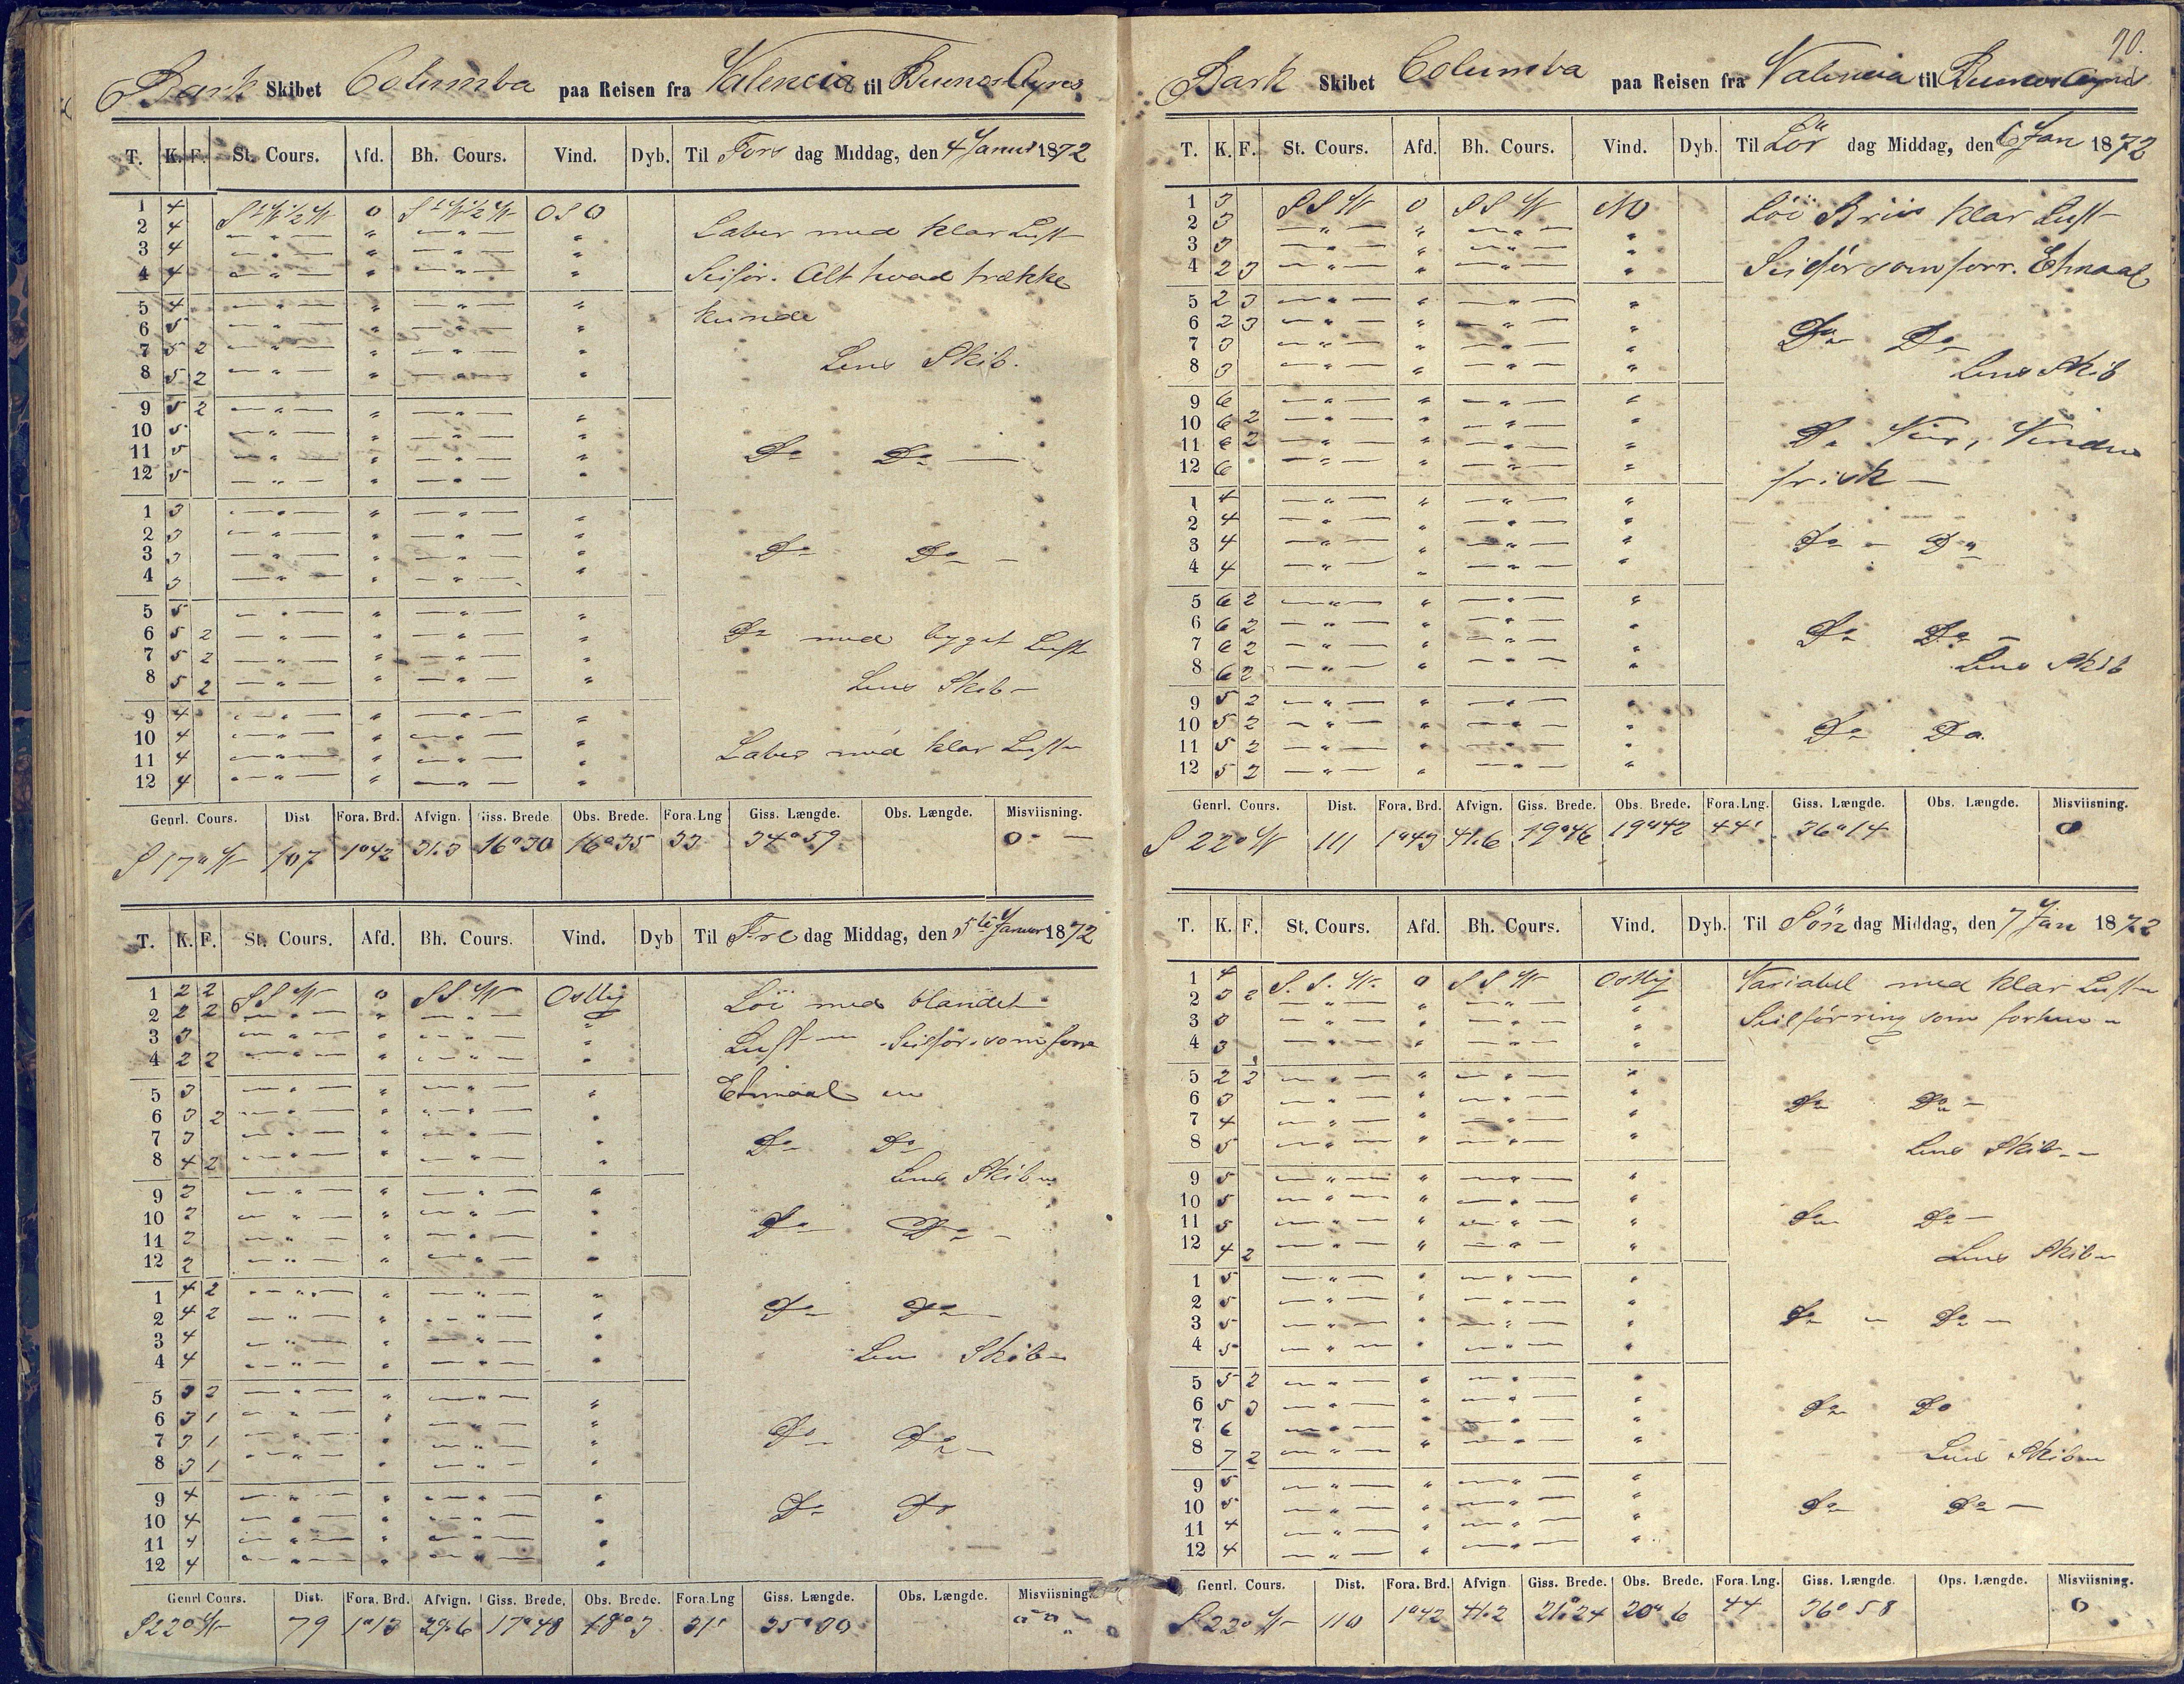 Bark Skibet Columba paa Reisen fra Valencia til Buenos Ayres
T. K. F. St. Cours. Afd. Bh. Cours. Vind. Dyb. Til Tors dag Middag, den 4 Januar 1872
1 4 StW½W 0 StW½W OSO
2 4 — " — " — " — "
3 4 — " — " — " — "
4 4 — " — " — " — "
Laber med klar Luft
Seilför. Alt hvad trække
kunde
5 4 — " — " — " — "
6 5 — " — " — " — "
7 5 2 — " — " — " — "
8 5 2 — " — " — " — "
Lens Skib.
9 5 2 — " — " — " — "
10 5 — " — " — " — "
11 5 — " — " — " — "
12 5 — " — " — " — "
Do Do —
1 3 — " — " — " — "
2 3 — " — " — " — "
3 3 — " — " — " — "
4 3 — " — " — " — "
Do Do –
5 5 — " — " — " — "
6 5 2 — " — " — " — "
7 5 2 — " — " — " — "
8 5 2 — " — " — " — "
Do med byget Luft
Lens Skib –
9 4 — " — " — " — "
10 4 — " — " — " — "
11 4 — " — " — " — "
12 4 — " — " — " — "
Laber med klar Luft
Genrl. Cours. Dist Fora. Brd. Afvign. Giss. Brede Obs. Brede. Fora. Lng Giss. Længde. Obs. Længde. Misviisning.
S 17° W 107 1°42 31.3 16°30 16°35 33 34°59 0 –
T. K. F. St. Cours. Afd. Bh. Cours. Vind. Dyb Til Fre dag Middag, den 5te Januar 1872
1 2 2 SSW 0 SSW Ostlig
2 2 2 — " — " — " — "
3 3 — " — " — " — "
4 2 2 — " — " — " — "
Löi med blandet
Luft – Seilför. som forre
Etmaal
5 3 — " — " — " — "
6 3 2 — " — " — " — "
7 3 — " — " — " — "
8 4 2 — " — " — " — "
Do Do
Lens Skib
9 2 — " — " — " — "
10 2 — " — " — " — "
11 2 — " — " — " — "
12 2 — " — " — " — "
Do Do –
1 4 2 — " — " — " — "
2 4 2 — " — " — " — "
3 4 — " — " — " — "
4 4 — " — " — " — "
Do Do
Lens Skib –
5 3 2 — " — " — " — "
6 3 1 — " — " — " — "
7 3 1 — " — " — " — "
8 3 1 — " — " — " — "
Do Do –
9 4 — " — " — " — "
10 4 — " — " — " — "
11 4 — " — " — " — "
12 4 — " — " — " — "
Do Do
Genrl Cours. Dist. Fora. Brd. Afvign. Giss. Brede. Obs. Brede. Fora. Lng Giss. Længde. Obs. Længde. Misviisning.
S 22° W 79 1°13 29.6 17°48 18°3 31' 35°30
70.
Bark Skibet Columba paa Reisen fra Valencia til Buenos Ayres
T. K. F. St. Cours. Afd. Bh. Cours. Vind. Dyb. Til Lör dag Middag, den 6 Jan 1872
1 3 SSW 0 SSW NO
2 3 — " — " — " — "
3 3 — " — " — " — "
4 2 3 — " — " — " — "
Löi Briis klar Luft
Seilför som forr. Etmaal
5 2 3 — " — " — " — "
6 2 3 — " — " — " — "
7 3 — " — " — " — "
8 3 — " — " — " — "
Do Do
Lens Skib
9 6 — " — " — " — "
10 6 2 — " — " — " — "
11 6 2 — " — " — " — "
12 6 — " — " — " — "
Do Veir, Vinden
frisk –
1 4 — " — " — " — "
2 4 — " — " — " — "
3 4 — " — " — " — "
4 4 — " — " — " — "
Do – Do
5 6 2 — " — " — " — "
6 6 2 — " — " — " — "
7 6 2 — " — " — " — "
8 6 2 — " — " — " — "
Do Do –
Lens Skib
9 5 2 — " — " — " — "
10 5 2 — " — " — " — "
11 5 2 — " — " — " — "
12 5 2 — " — " — " — "
Do Do.
Genrl. Cours. Dist. Fora. Brd. Afvign. Giss. Brede. Obs. Brede. Fora. Lng. Giss. Længde. Obs. Længde. Misviisning.
S 22° W 111 1°43 41.6 19°46 19°42 44' 36°14 0
T. K. F. St. Cours. Afd. Bh. Cours. Vind. Dyb. Til Sön dag Middag, den 7 Jan 1872
1 4 S.S.W. 0 SSW Ostlig
2 3 2 — " — " — " — "
3 3 — " — " — " — "
4 3 — " — " — " — "
Variabel med klar Luft
Seilförring som forhen
5 2 3 — " — " — " — "
6 3 — " — " — " — "
7 4 — " — " — " — "
8 5 — " — " — " — "
Do Do –
Lens Skib –
9 5 — " — " — " — "
10 5 — " — " — " — "
11 5 — " — " — " — "
12 4 2 — " — " — " — "
Do Do –
Lens Skib –
1 5 — " — " — " — "
2 5 — " — " — " — "
3 5 — " — " — " — "
4 5 — " — " — " — "
Do – Do –
5 5 2 — " — " — " — "
6 5 3 — " — " — " — "
7 6 — " — " — " — "
8 7 2 — " — " — " — "
Do Do
Lens Skib
9 5 — " — " — " — "
10 5 — " — " — " — "
11 4 — " — " — " — "
12 4 — " — " — " — "
Do Do –
Genrl. Cours. Dist. Fora. Brd. Afvign Giss. Brede. Obs. Brede. Fora. Lng. Giss. Længde. Ops. Længde. Misviisning.
S 22° W 110 1°42 41.2 21°24 20°6 44 36°58 0